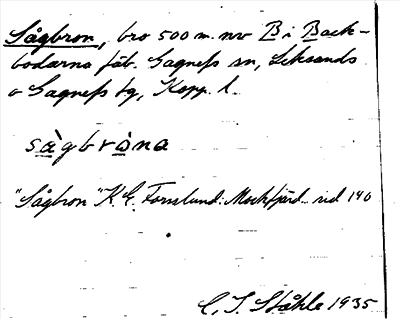 Sågbron, bro 500 m. nv B i Back-
bodarna fäb. Gagnefs sn, Leksands
o Gagnefs tg, Kopp. l.
sàgbròna
"Sågbron" K. E. Forslund: Mockfjärd sid 140
C. I. Ståhle 1935